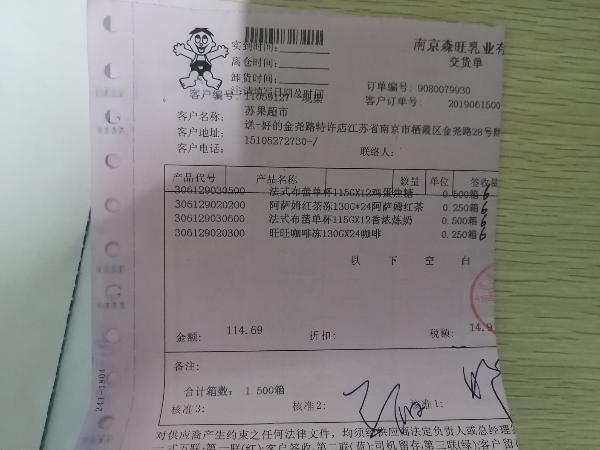 南京森旺乳业有
交货单
实到时间:
离仓时间:
卸货时间:
注:请填写日期及时间
订单编号: 9080079930
客户编号: 11059127
客户订单号: 2019061500
客户名称: 苏果超市
客户地址: 送-好的金尧路特许店江苏省南京市栖霞区金尧路28号
客户电话: 15105272730-/ 联络人:
产品代号 产品名称 数量 单位 签收量
306129030500 法式布蕾单杯115GX12鸡蛋 0.500箱 6
306129020200 阿萨姆红茶冻130G*24阿萨姆红茶 0.250箱 6
306129030600 法式布蕾单杯115GX12香浓炼奶 0.500箱 6
306129020300 旺旺咖啡冻130GX24咖啡 0.250箱 6
以下空白
金额: 114.69 折扣: 税额: 14.9
备注:
合计箱数: 1.500箱
核准3: 核准2: 核准1:
241-1804
对供应商产生约束之任何法律文件，均须经供应商法定负责人或总经理
一式五联:第一联(红):客户签收,第二联(蓝):司机留存,第三联(绿):客户留